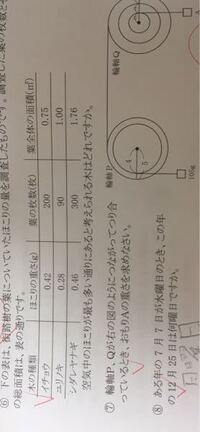 ⑥ 下の表は、街路樹の葉についていたほこりの量を調査したものです。調査した葉の枚数と
の総面積は、表の通りです。
木の種類 ほこりの重さ(g) 葉の枚数(枚) 葉全体の面積(㎡)
イチョウ 0.42 200 0.75
ユリノキ 0.28 90 1.00
シダレヤナギ 0.46 300 1.76
空気中のほこりが最も多い通りにあると考えられる木はどれですか。
⑦ 輪軸P、Qが右の図のようにつながってつり合
っているとき、おもりAの重さを求めなさい。
輪軸P
輪軸Q
4
5
A
105g
⑧ ある年の7月7日が水曜日のとき、この年
の12月25日は何曜日ですか。